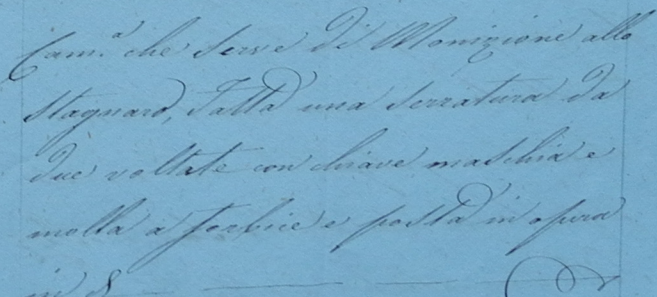 Cam.ª che serve di Monizione allo
stagnaro, fatta una serratura da
due voltate con chiave maschia e
molla a forbice e posta in opera
in S